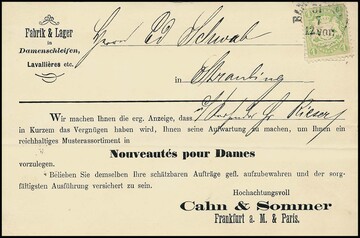 Fabrik & Lager
in
Damenschleifen,
Lavallières etc.
Herrn Ed Schwab
in Straubing
12 VOR
Wir machen Ihnen die erg. Anzeige, dass
in Kurzem das Vergnügen haben wird, Ihnen seine Aufwartung zu machen, um Ihnen ein
reichhaltiges Musterassortiment in
Nouveautés pour Dames
vorzulegen.
Belieben Sie demselben Ihre schätzbaren Aufträge gefl. aufzubewahren und der sorg-
fältigsten Ausführung versichert zu sein.
Hochachtungsvoll
Cahn & Sommer
Frankfurt a. M. & Paris.